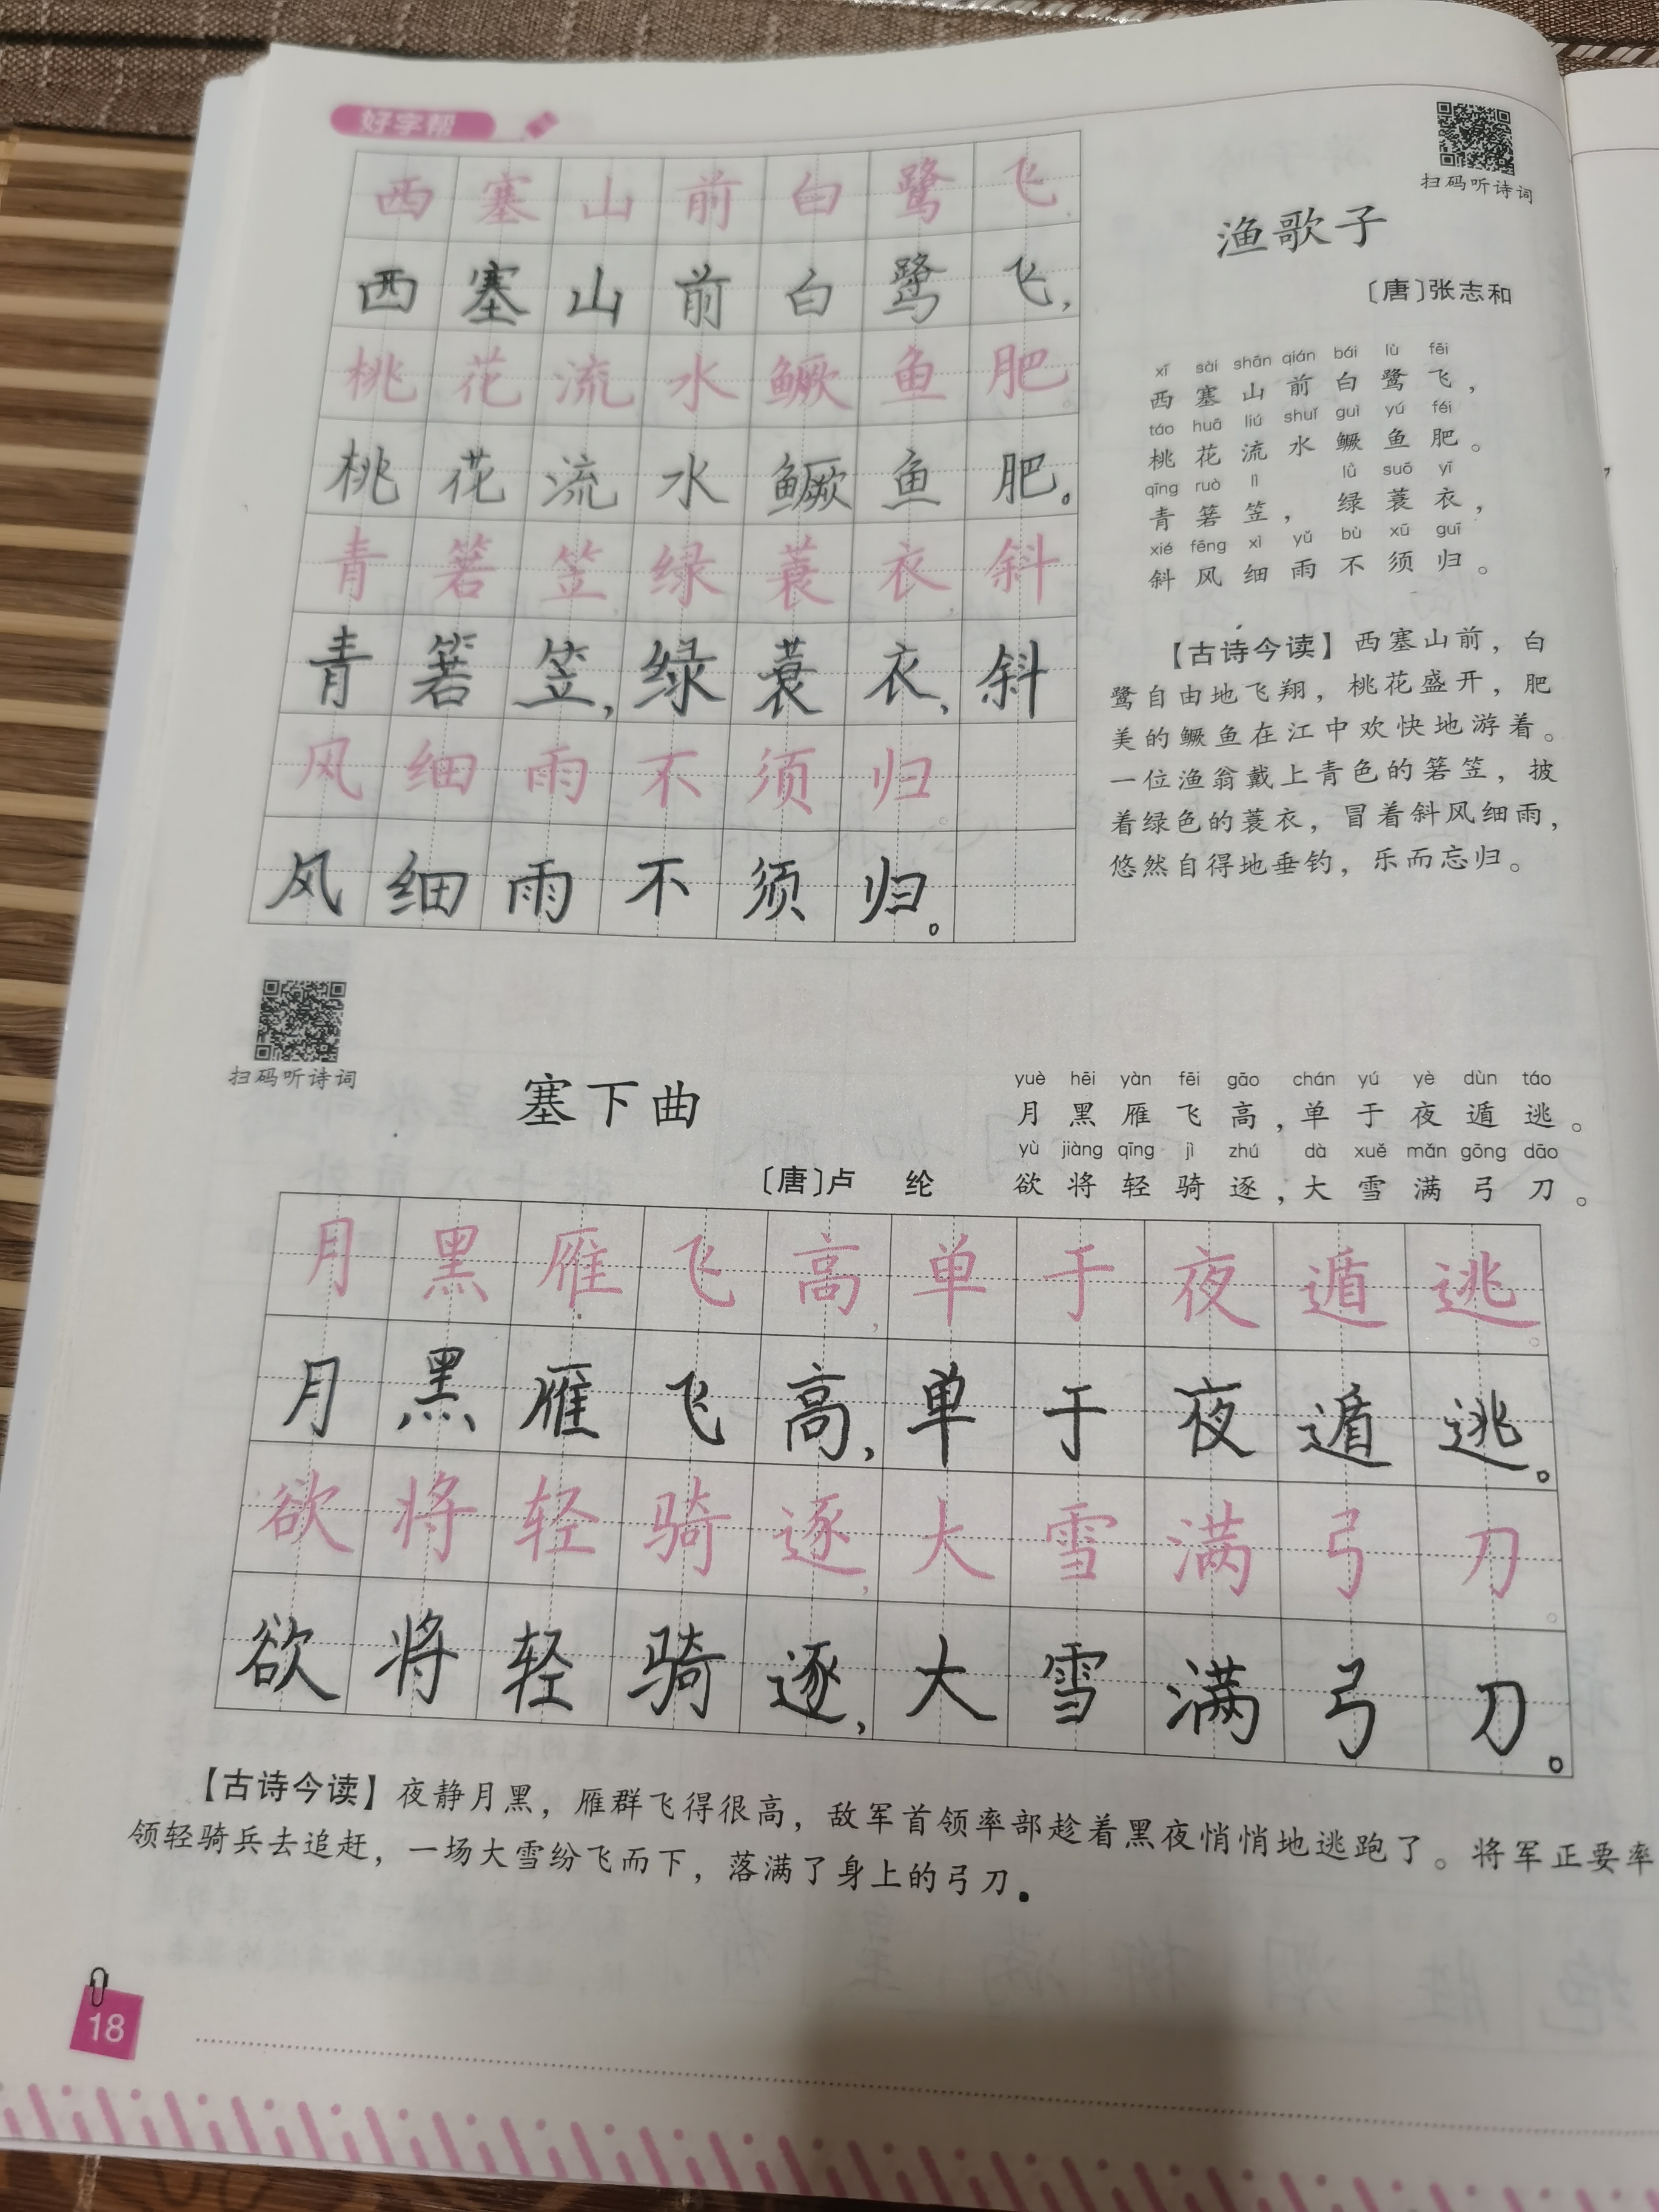 好字帮
西塞山前白鹭飞，
西塞山前白鹭飞，
桃花流水鳜鱼肥。
桃花流水鳜鱼肥。
青箬笠，绿蓑衣，斜
青箬笠，绿蓑衣，斜
风细雨不须归。
风细雨不须归。
扫码听诗词
渔歌子
〔唐〕张志和
xī sài shān qián bái lù fēi
西塞山前白鹭飞，
táo huā liú shuǐ guì yú féi
桃花流水鳜鱼肥。
qīng ruò lì lǜ suō yī
青箬笠，绿蓑衣，
xié fēng xì yǔ bù xū guī
斜风细雨不须归。
【古诗今读】西塞山前，白
鹭自由地飞翔，桃花盛开，肥
美的鳜鱼在江中欢快地游着。
一位渔翁戴上青色的箬笠，披
着绿色的蓑衣，冒着斜风细雨，
悠然自得地垂钓，乐而忘归。
扫码听诗词
塞下曲
〔唐〕卢 纶
yuè hēi yàn fēi gāo chán yú yè dùn táo
月黑雁飞高，单于夜遁逃。
yù jiàng qīng jì zhú dà xuě mǎn gōng dāo
欲将轻骑逐，大雪满弓刀。
月黑雁飞高，单于夜遁逃。
月黑雁飞高，单于夜遁逃。
欲将轻骑逐，大雪满弓刀。
欲将轻骑逐，大雪满弓刀。
【古诗今读】夜静月黑，雁群飞得很高，敌军首领率部趁着黑夜悄悄地逃跑了。将军正要率
领轻骑兵去追赶，一场大雪纷飞而下，落满了身上的弓刀。
18